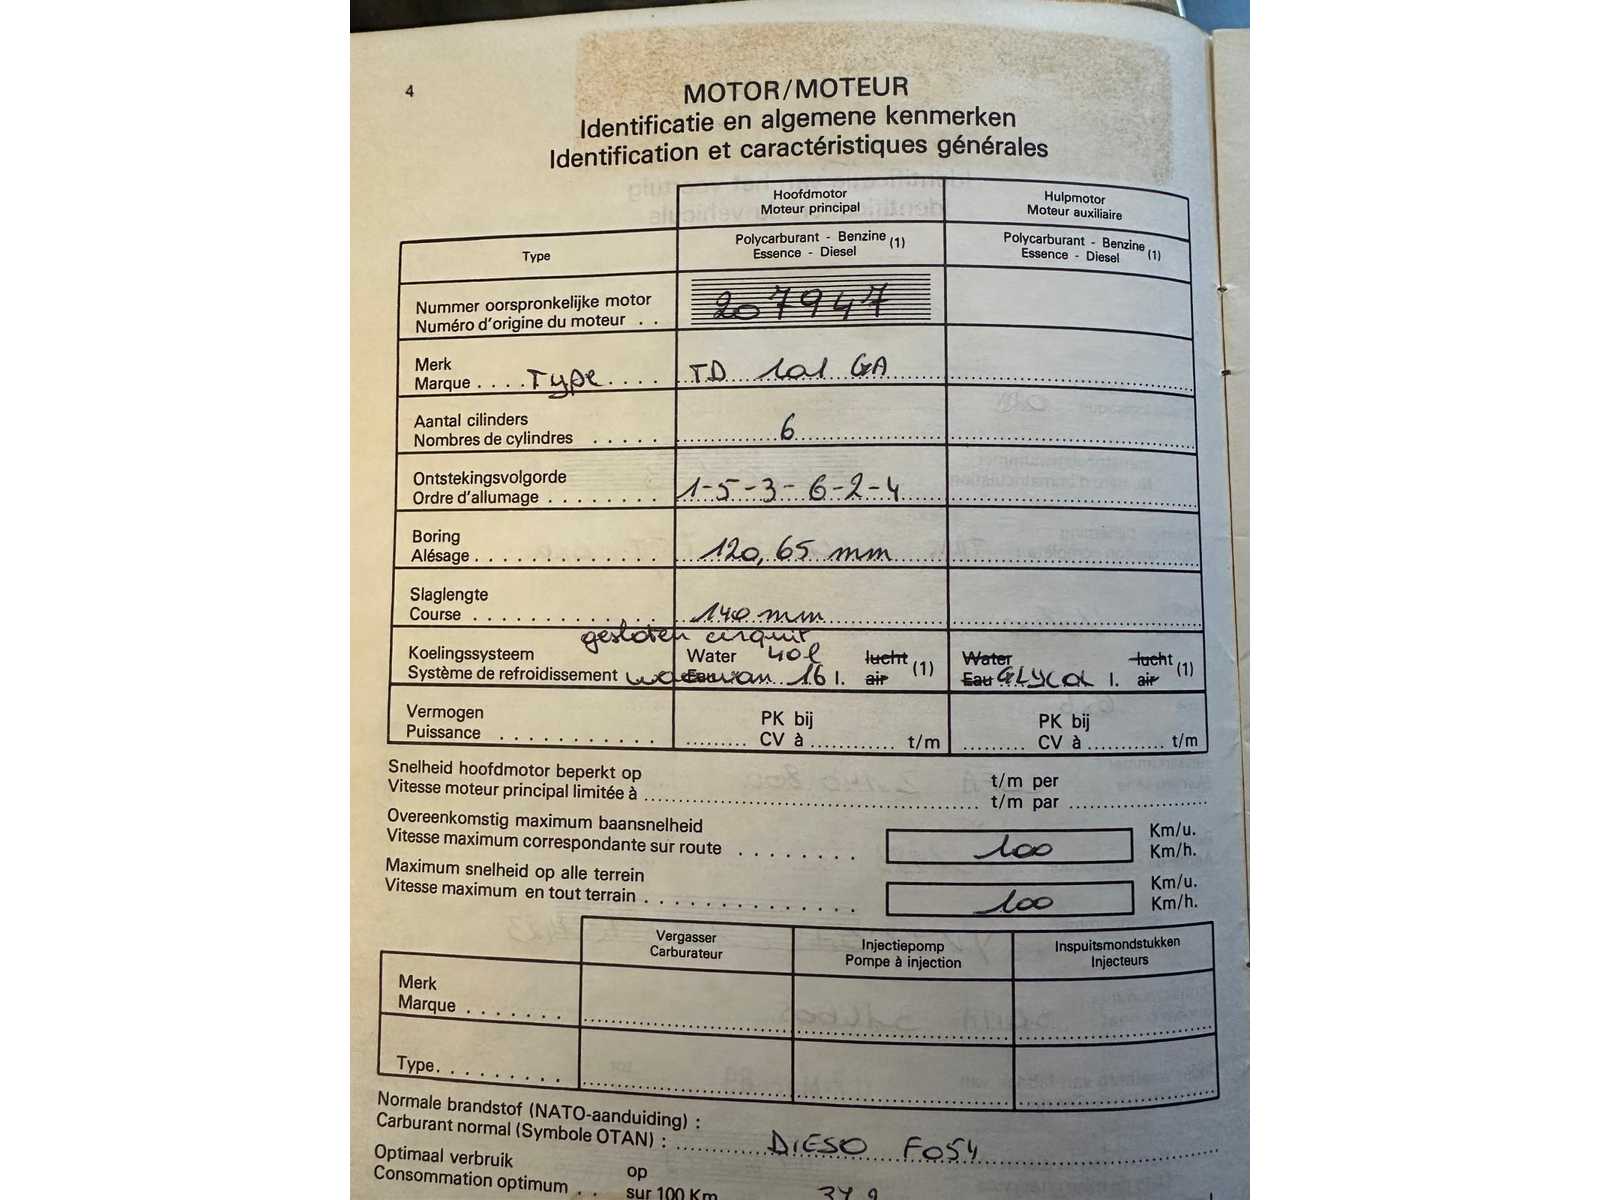 4
MOTOR/MOTEUR
Identificatie en algemene kenmerken
Identification et caractéristiques générales
Hoofdmotor
Moteur principal
Hulpmotor
Moteur auxiliaire
Type
Polycarburant - Benzine (1)
Essence - Diesel
Polycarburant - Benzine (1)
Essence - Diesel
Nummer oorspronkelijke motor
Numéro d'origine du moteur . .
207947
Merk
Marque . . . . Type . . . .
TD 101 GA
Aantal cilinders
Nombres de cylindres . . . . .
6
Ontstekingsvolgorde
Ordre d'allumage . . . . . . . .
1-5-3-6-2-4
Boring
Alésage . . . . . . . . . . . . .
120,65 mm
Slaglengte
Course . . . . . . . . . . . . .
140 mm
gesloten cirquit
Koelingssysteem
Système de refroidissement waarvan
Water 40l lucht (1)
Eau 16 l. air
Water lucht (1)
Eau GLYCOL l. air
Vermogen
Puissance . . . . . . . . . . .
PK bij
CV à t/m
PK bij
CV à t/m
Snelheid hoofdmotor beperkt op t/m per
Vitesse moteur principal limitée à t/m par
Overeenkomstig maximum baansnelheid Km/u.
Vitesse maximum correspondante sur route . . . . . . . . 100 Km/h.
Maximum snelheid op alle terrein Km/u.
Vitesse maximum en tout terrain . . . . . . . . . . . . . . 100 Km/h.
Vergasser
Carburateur
Injectiepomp
Pompe à injection
Inspuitsmondstukken
Injecteurs
Merk
Marque . . . . . . .
Type. . . . . . . . . .
Normale brandstof (NATO-aanduiding) :
Carburant normal (Symbole OTAN) : DIESO F054
Optimaal verbruik op
Consommation optimum . . sur 100 Km